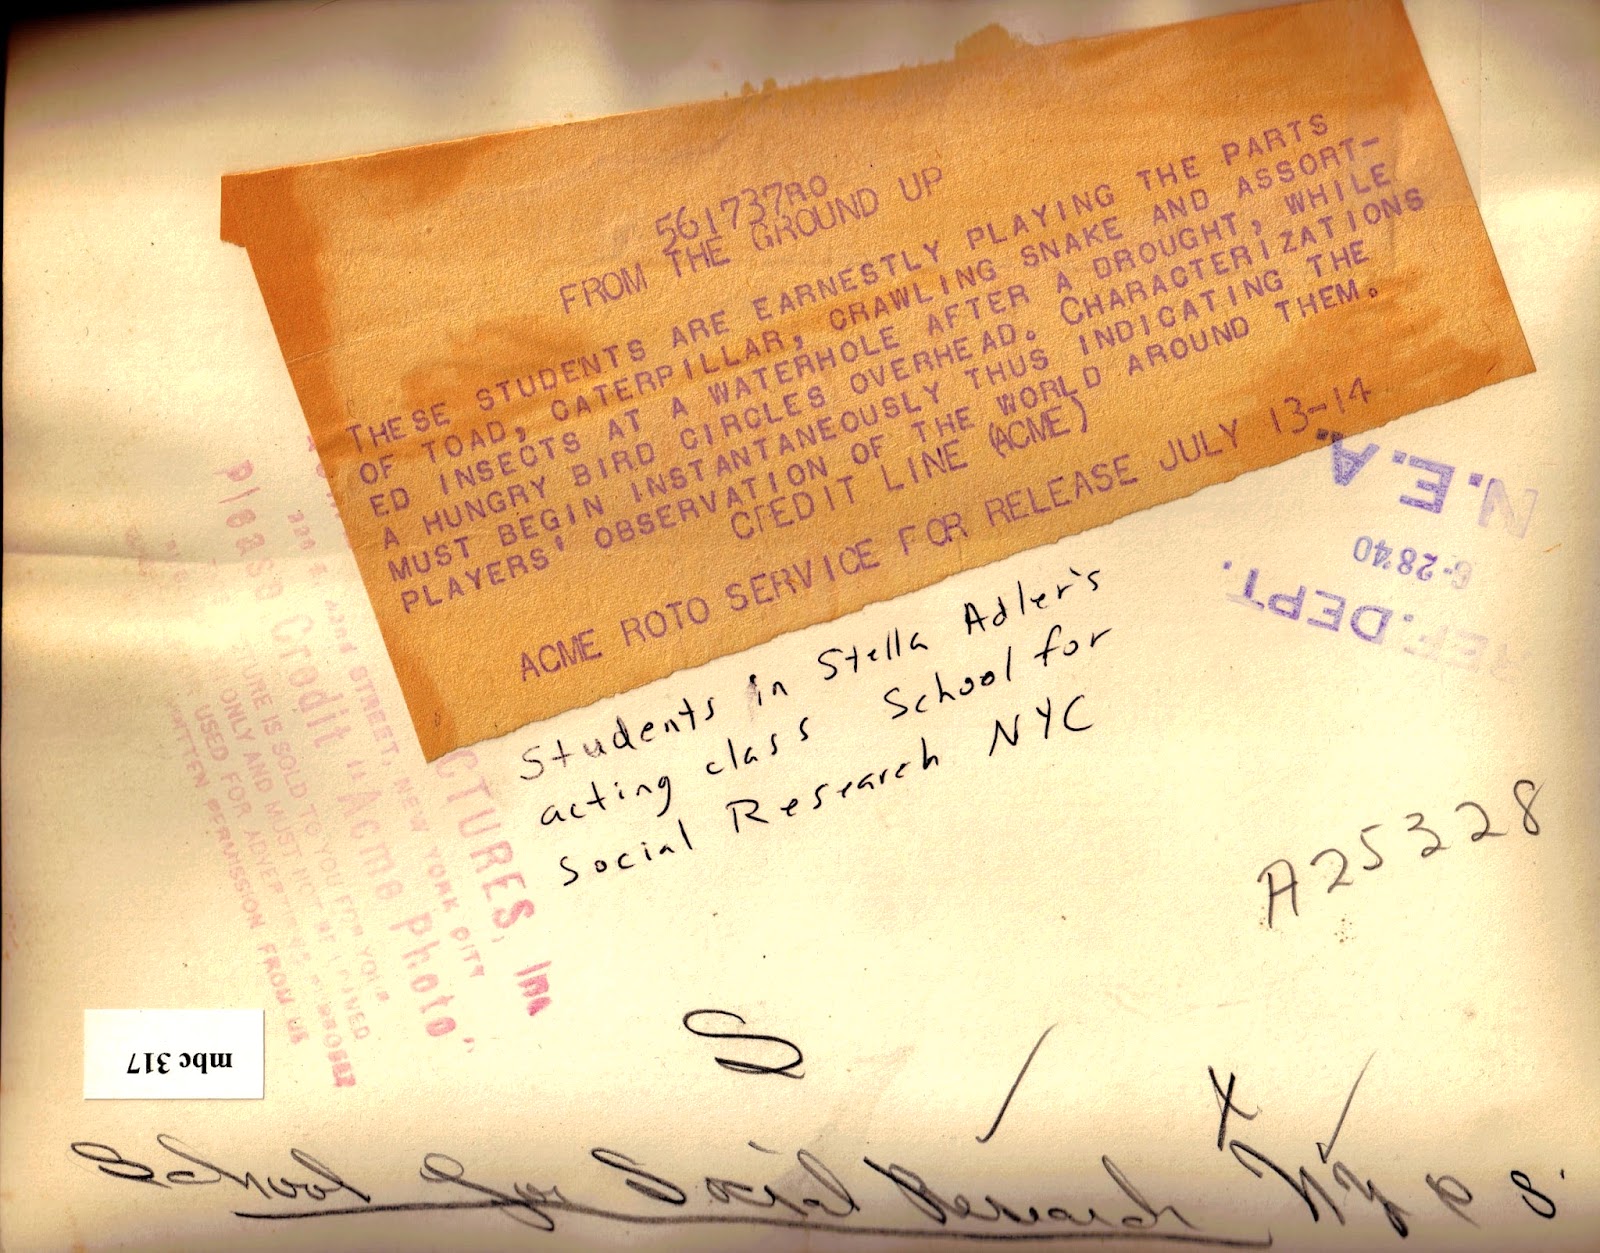 561737RO
FROM THE GROUND UP
THESE STUDENTS ARE EARNESTLY PLAYING THE PARTS
OF TOAD, CATERPILLAR, CRAWLING SNAKE AND ASSORT-
ED INSECTS AT A WATERHOLE AFTER A DROUGHT, WHILE
A HUNGRY BIRD CIRCLES OVERHEAD. CHARACTERIZATIONS
MUST BEGIN INSTANTANEOUSLY THUS INDICATING THE
PLAYERS' OBSERVATION OF THE WORLD AROUND THEM.
CREDIT LINE (ACME)
ACME ROTO SERVICE FOR RELEASE JULY 13-14
Students in Stella Adler's
acting class School for
Social Research NYC
N.E.A.
6-28'40
REF. DEPT.
A25328
CTURES, Inc
42nd STREET, NEW YORK CITY
Please Credit "Acme Photo"
TURE IS SOLD TO YOU FOR YOUR
ONLY AND MUST NOT BE LOANED
USED FOR ADVERTISING PURPOSES
WRITTEN PERMISSION FROM US
mbc 317
S
X
School for Social Research NY